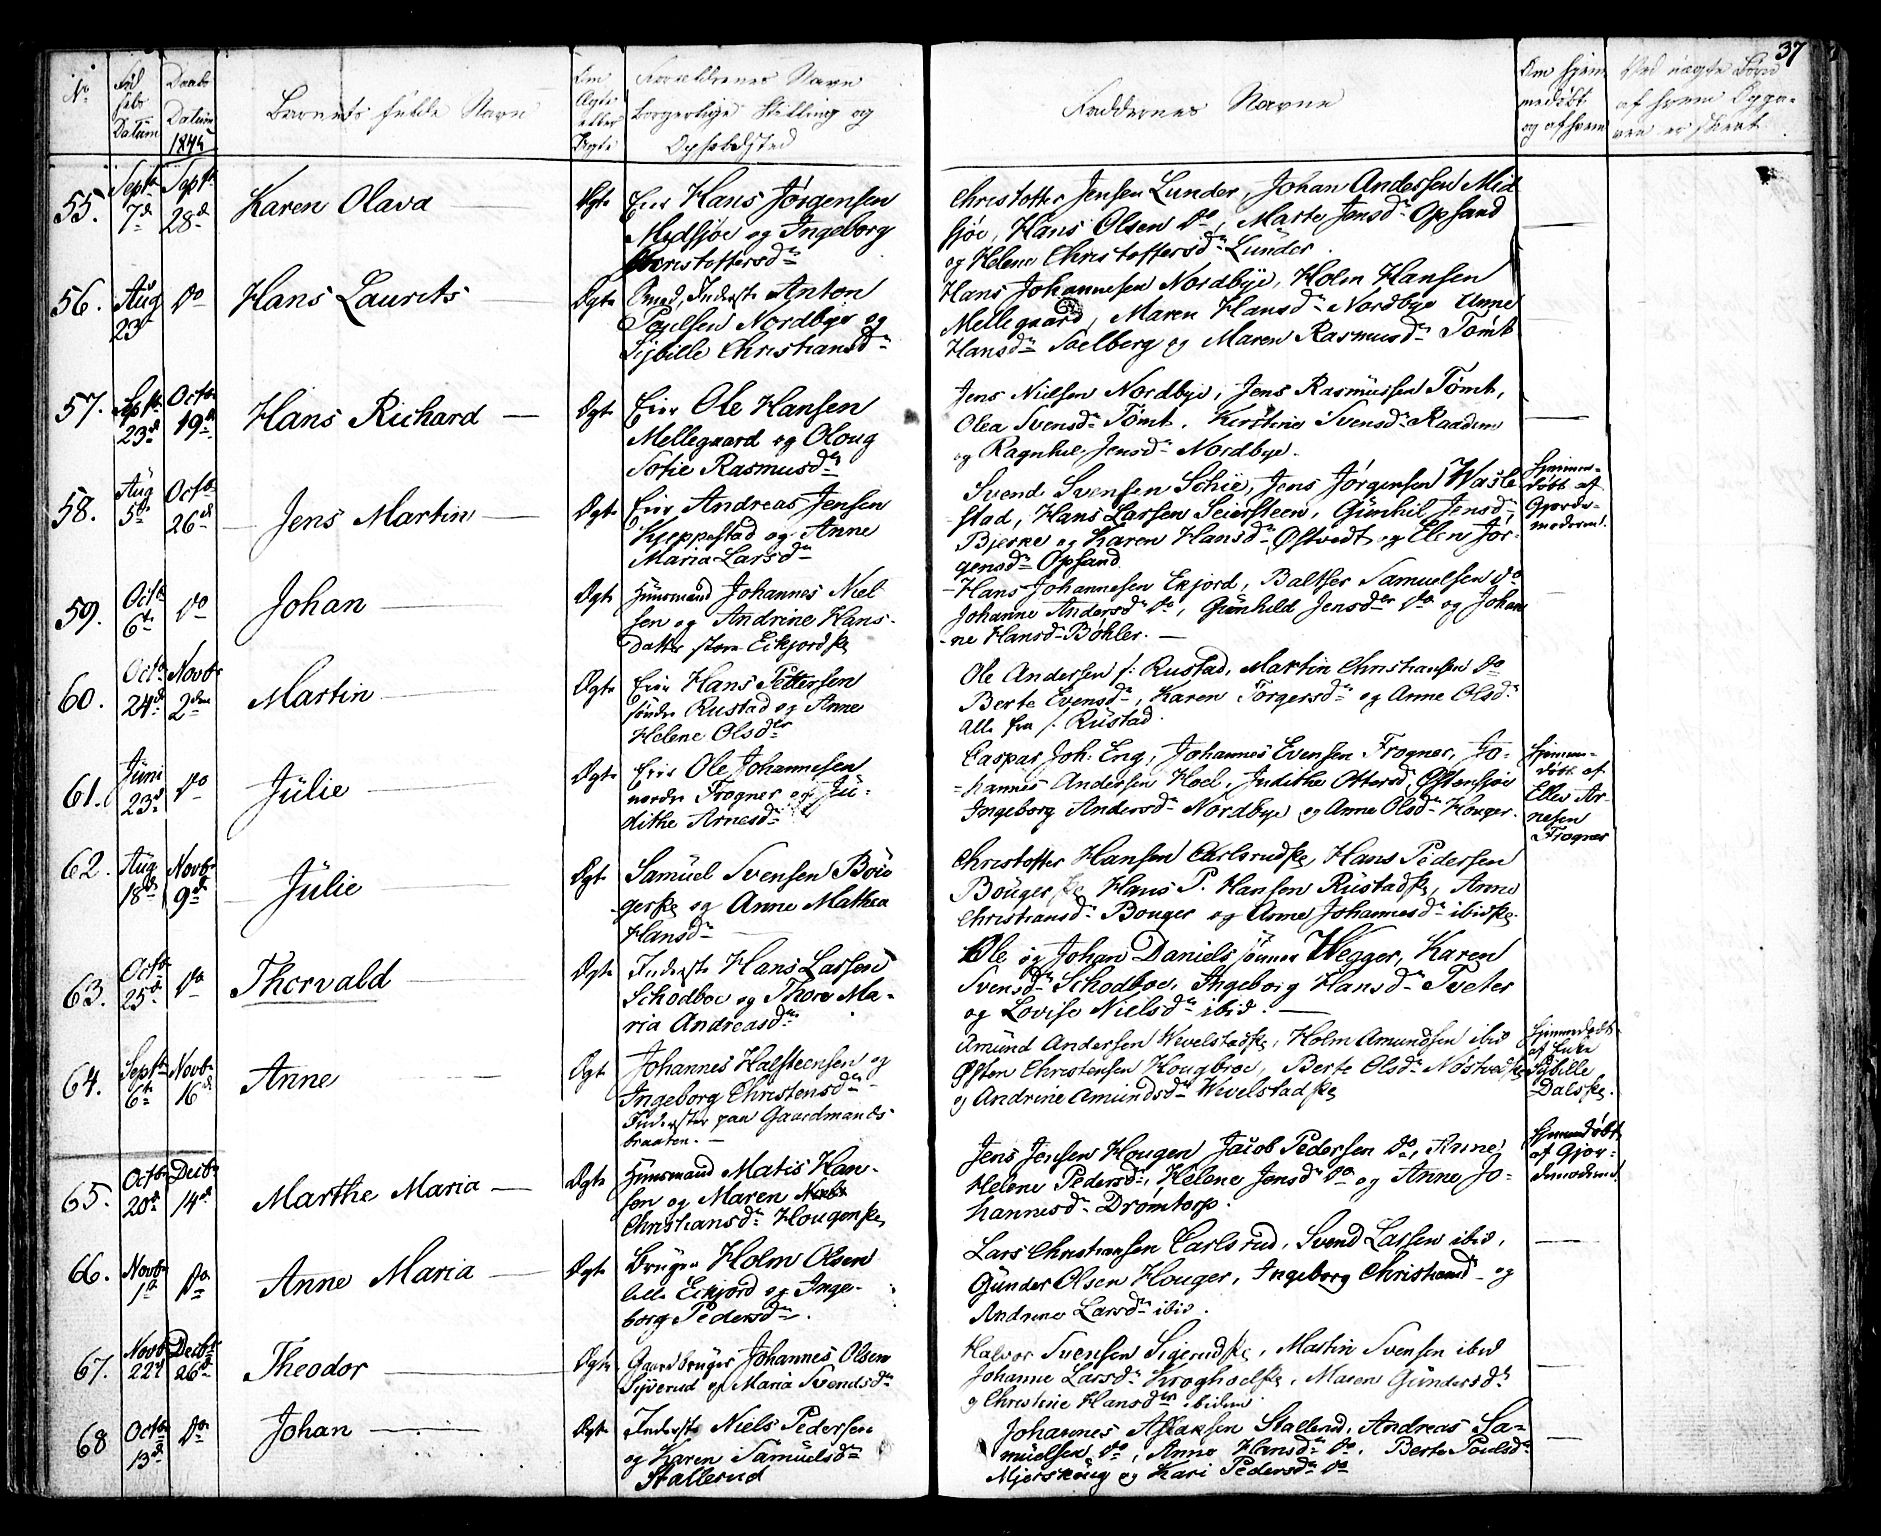 37
No
Fød
sels
Datum
Daabs
Datum
1845
Barnets fulde Navn
Om
Ægte
eller
Uægte
Forældrenes Navn
borgerlige Stilling og
Opholdsted
Faddernes Navne
Om hjem
medøbt
og af hvem
Ved uægte Børn
af hvem Opga-
ven er skeet.
55.
Septr
7de
Septr
28de
Karen Olava
Ægte
Eier Hans Jørgensen
Midsjøe og Ingeborg
Christoffersdr
Christoffer Jensen Lunder, Johan Andersen Mid
sjøe, Hans Olsen do, Marte Jensdr Opsand
og Helene Christoffersdr Lunder.
56.
Aug
23
do
Hans Laurits
Ægte
Smed, Inderste Anton
Povelsen Nordbye og
Sybille Christiansdr
Hans Johannesen Nordbye, Holm Hansen
Mellegaard, Maren Hansdr Nordbye Anne
Hansdr Solberg og Maren Rasmusdr Tømt
57.
Septr
23de
Octr
19de
Hans Richard
Ægte
Eier Ole Hansen
Mellegaard og Oloug
Sofie Rasmusdr
Jens Nielsen Nordbye, Jens Rasmussen Tømt,
Olea Svensdr Tømt, Kirstine Svensdr Raadim
og Ragnhil Jensdr Nordbye.
58.
Aug
5te
Octr
26de
Jens Martin
Ægte
Eier Andreas Jensen
Kjeppestad og Anne
Maria Larsdr
Svend Svensen Schie, Jens Jørgensen Wasle
stad, Hans Larsen Seiersteen, Gunhil Jensdr
Bjerke og Karen Hansdr Østvedt og Elen Jør-
gensdr Opsand
Hjemme-
døbt af
Gjorde-
moderen.
59.
Octr
6te
do
Johan
Ægte
Huusmand Johannes Niel
sen og Andrine Hans-
datter store Eikjordske
Hans Johannesen Ekjord, Baltser Samuelsen do
Johanne Andersdr do, Grønhild Jensdr do og Johan
ne Hansdr Bøhler.
60.
Octr
24de
Novbr
2den
Martin
Ægte
Eier Hans Pettersen
søndre Rustad og Anne
Helene Olsdr
Ole Andersen s: Rustad, Martin Christiansen do
Berte Evensdr, Karen Torgersdr og Anne Olsdr
alle fra s. Rustad.
61.
Juni
23de
do
Julie
Ægte
Eier Ole Johannesen
nordre Frogner og Ju-
dithe Arnesdr
Caspar Joh: Eng, Johannes Evensen Frogner, Jo-
hannes Andersen Hoel, Judithe Ottersd Østensjøe
Ingeborg Andersdr Nordbye og Anne Olsdr Houger.
Hjemme-
døbt af
Elles Ar-
nesen
Frogner
62.
Aug
18de
Novbr
9de
Julie
Ægte
Samuel Svensen Bou
gerske og Anne Mathea
Hansdr
Christoffer Hansen Carlsrudske, Hans Pedersen
Bouger ske Hans P. Hansen Rustadske, Anne
Christiansdr Bouger og Anne Johannesdr ibidske.
63.
Octr
25de
do
Thorvald
Ægte
Inderste Hans Larsen
Schodboe og Thore Ma-
ria Andreasdr
Ole og Johan Daniels sønner Wegger, Karen
Svensdr Schodboe, Ingeborg Hansdr Tveter
og Lovise Nielsdr ibid.
64.
Septr
6te
Novbr
16de
Anne
Ægte
Johannes Halsteensen og
Ingeborg Christensdr
Inderster paa Gaardmands-
braaten.
Amund Andersen Wevelstadske, Holm Amundsen ibid
Østen Christensen Hougbroe, Berte Olsdr Nøstvedske
og Andrine Amundsdr Wevelstadske
Hjemmedøbt
af Enke
Sybille
Dalske.
65.
Octbr
20de
Decbr
14de
Marthe Maria
Ægte
Huusmand Matis Han-
sen og Maren
Christiansdr Hougenske
Jens Jensen Hougen Jacob Pedersen do, Anne
Helene Pedersdr, Helene Jensdr do og Anne Jo-
hannesdr Drømtorp.
Hjemmedøbt
af Gjor-
demoderen.
66.
Novbr
1ste
do
Anne Maria
Ægte
Bruger Holm Olsen
lille Eikjord og Inge-
borg Pedersdr.
Lars Christiansen Carlsrud, Svend Larsen ibid,
Gunder Olsen Houger, Ingeborg Christiansd og
Andrine Larsdr ibid.
67.
Novb
22de
Decbr
26de
Theodor
Ægte
Gaardbruger Johannes Olsen
Syverud og Maria Svendsdr
Halvor Svensen Sigerudske, Martin Svensen ibid
Johanne Larsdr Kroghoelske, Maren Gundersdr
og Christine Hansdr ibidem
68
Octr
13de
do
Johan
Ægte
Inderste Niels Pedersen
og Karen Samuelsdr
Stallerud
Johannes Aslaksen Stallerud, Andreas Sa-
muelsen do, Anne Hansdr do. Berte Poulsdr
Mjerskoug og Kari Pedersdr do